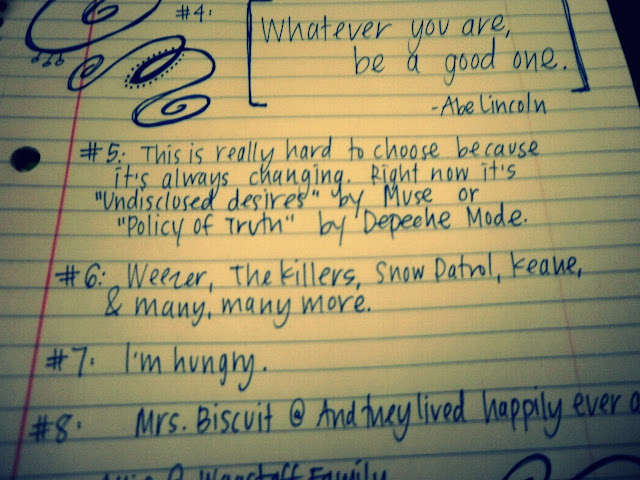 #4:
Whatever you are,
be a good one.
- Abe Lincoln
#5: This is really hard to choose because
it's always changing. Right now it's
"Undisclosed desires" by Muse or
"Policy of Truth" by Depeche Mode.
#6: Weezer, The Killers, Snow Patrol, Keane,
& many, many more.
#7: I'm hungry.
#8: Mrs. Biscuit @ And they lived happily ever
Family